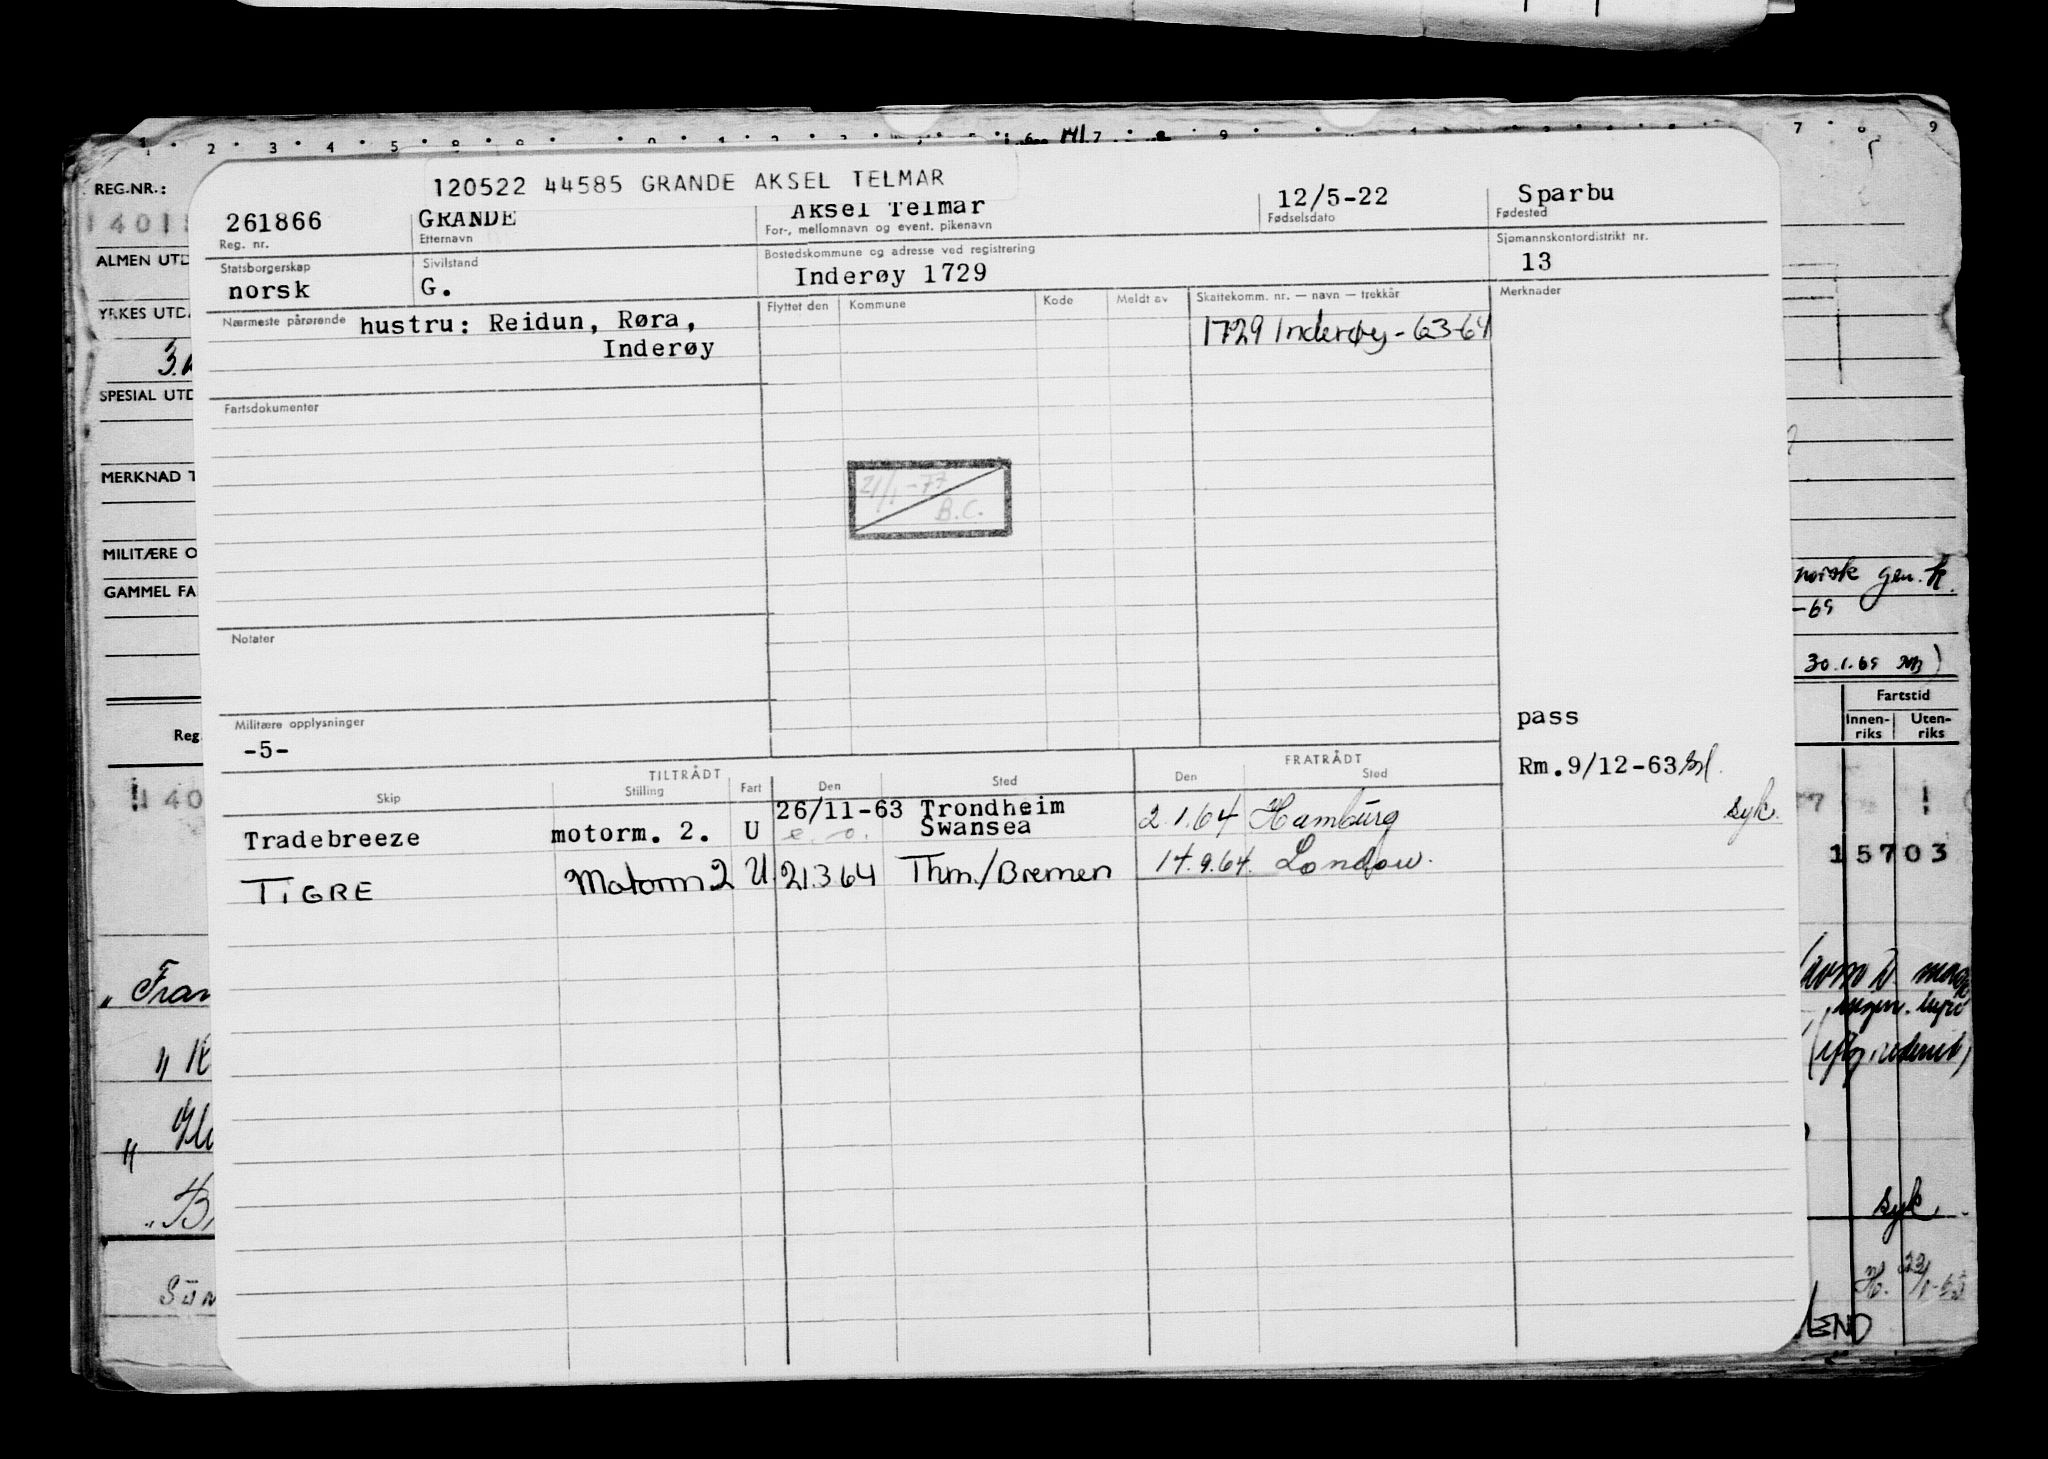 REG.NR.:
120522 44585 GRANDE AKSEL TELMAR
261866 GRANDE Aksel Telmar 12/5-22 Sparbu
Reg. nr. Etternavn For-, mellomnavn og event. pikenavn Fødselsdato Fødested
ALMEN UTD
Statsborgerskap Sivilstand Bostedskommune og adresse ved registrering Sjømannskontordistrikt nr.
norsk G. Inderøy 1729 13
YRKES UTDA
Nærmeste pårørende hustru: Reidun, Røra,
Inderøy
Flyttet den Kommune Kode Meldt av Skattekomm. nr. — navn — trekkår Merknader
1729 Inderøy - 63-64
SPESIAL UTD
Fartsdokumenter
MERKNAD T
21/1-77
B.C.
MILITÆRE O
GAMMEL FA
norsk gen. k.
-69
Notater
30.1.69
Fartstid
Innen-riks Uten-riks
Militære opplysninger
-5-
pass
Rm.9/12-63
Reg.
TILTRÅDT FRATRÅDT
Skip Stilling Fart Den Sted Den Sted
26/11-63 Trondheim
Tradebreeze motorm. 2. U e. o. Swansea 2.1.64 Hamburg syk.
TIGRE Motorm 2 U 21.3 64 Thm./Bremen 14.9.64. London.
15703
" Fran
syk.